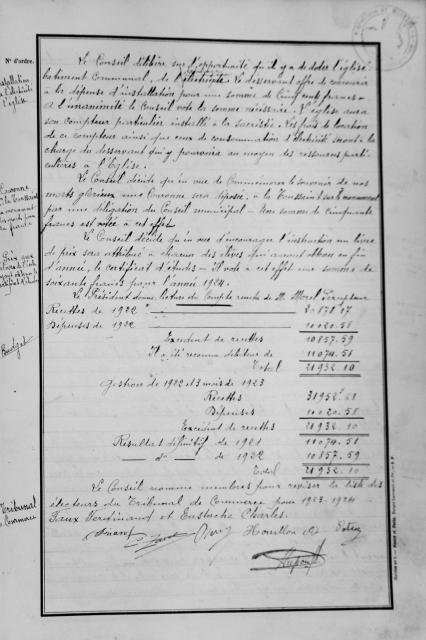 N° d'ordre.
Installation
de l'électricité
à l'église
Le Conseil délibère sur l'opportunité qu'il y a de doter l'église
batiment Communal, de l'électricité. Le desservant offre de concourir
à la dépense d'installation pour une somme de Cinq cents francs -
A l'unanimité le Conseil vote la somme nécessaire. L'église aura
son compteur particulier installé à la sacristie. Les frais de location
de ce compteur ainsi que ceux de consommation d'électricité seront à la
charge du desservant qui y pourvoira au moyen des ressources parti-
culières à l'Eglise.
Couronne
à la Toussaint
Le Conseil décide qu'en vue de Commémorer le souvenir de nos
morts glorieux une Couronne sera déposée, à la Toussaint sur le monument
par une délégation du Conseil municipal - Une somme de cinquante
francs est votée à cet effet
Prix aux
Le Conseil décide qu'en vue d'encourager l'instruction un livre
de prix sera attribué à chacun des élèves qui auront obtenu en fin
d'année, le certificat d'études - Il vote à cet effet une somme de
soixante francs pour l'année 1924.
Budget
Le Président donne lecture du Compte rendu de M. Morel Percepteur
Recettes de 1922 20878.17
Dépenses de 1922 10020.58
Excédent de recettes 10857.59
Il a été reconnu débiteur de 11074.51
Total 21932.10
Gestions de 1922 et 3 mois de 1923
Recettes 31952.68
Dépenses 10020.58
Excédent de recettes 21932.10
Resultat définitif de 1921 11074.51
— do — de 1922 10857.59
Total 21932.10
Tribunal
de Commerce
Le Conseil nomme membres pour reviser la liste des
électeurs du Tribunal de Commerce pour 1923-1924
Faux Ferdinand et Eustache Charles.
Hourllon
Dupont